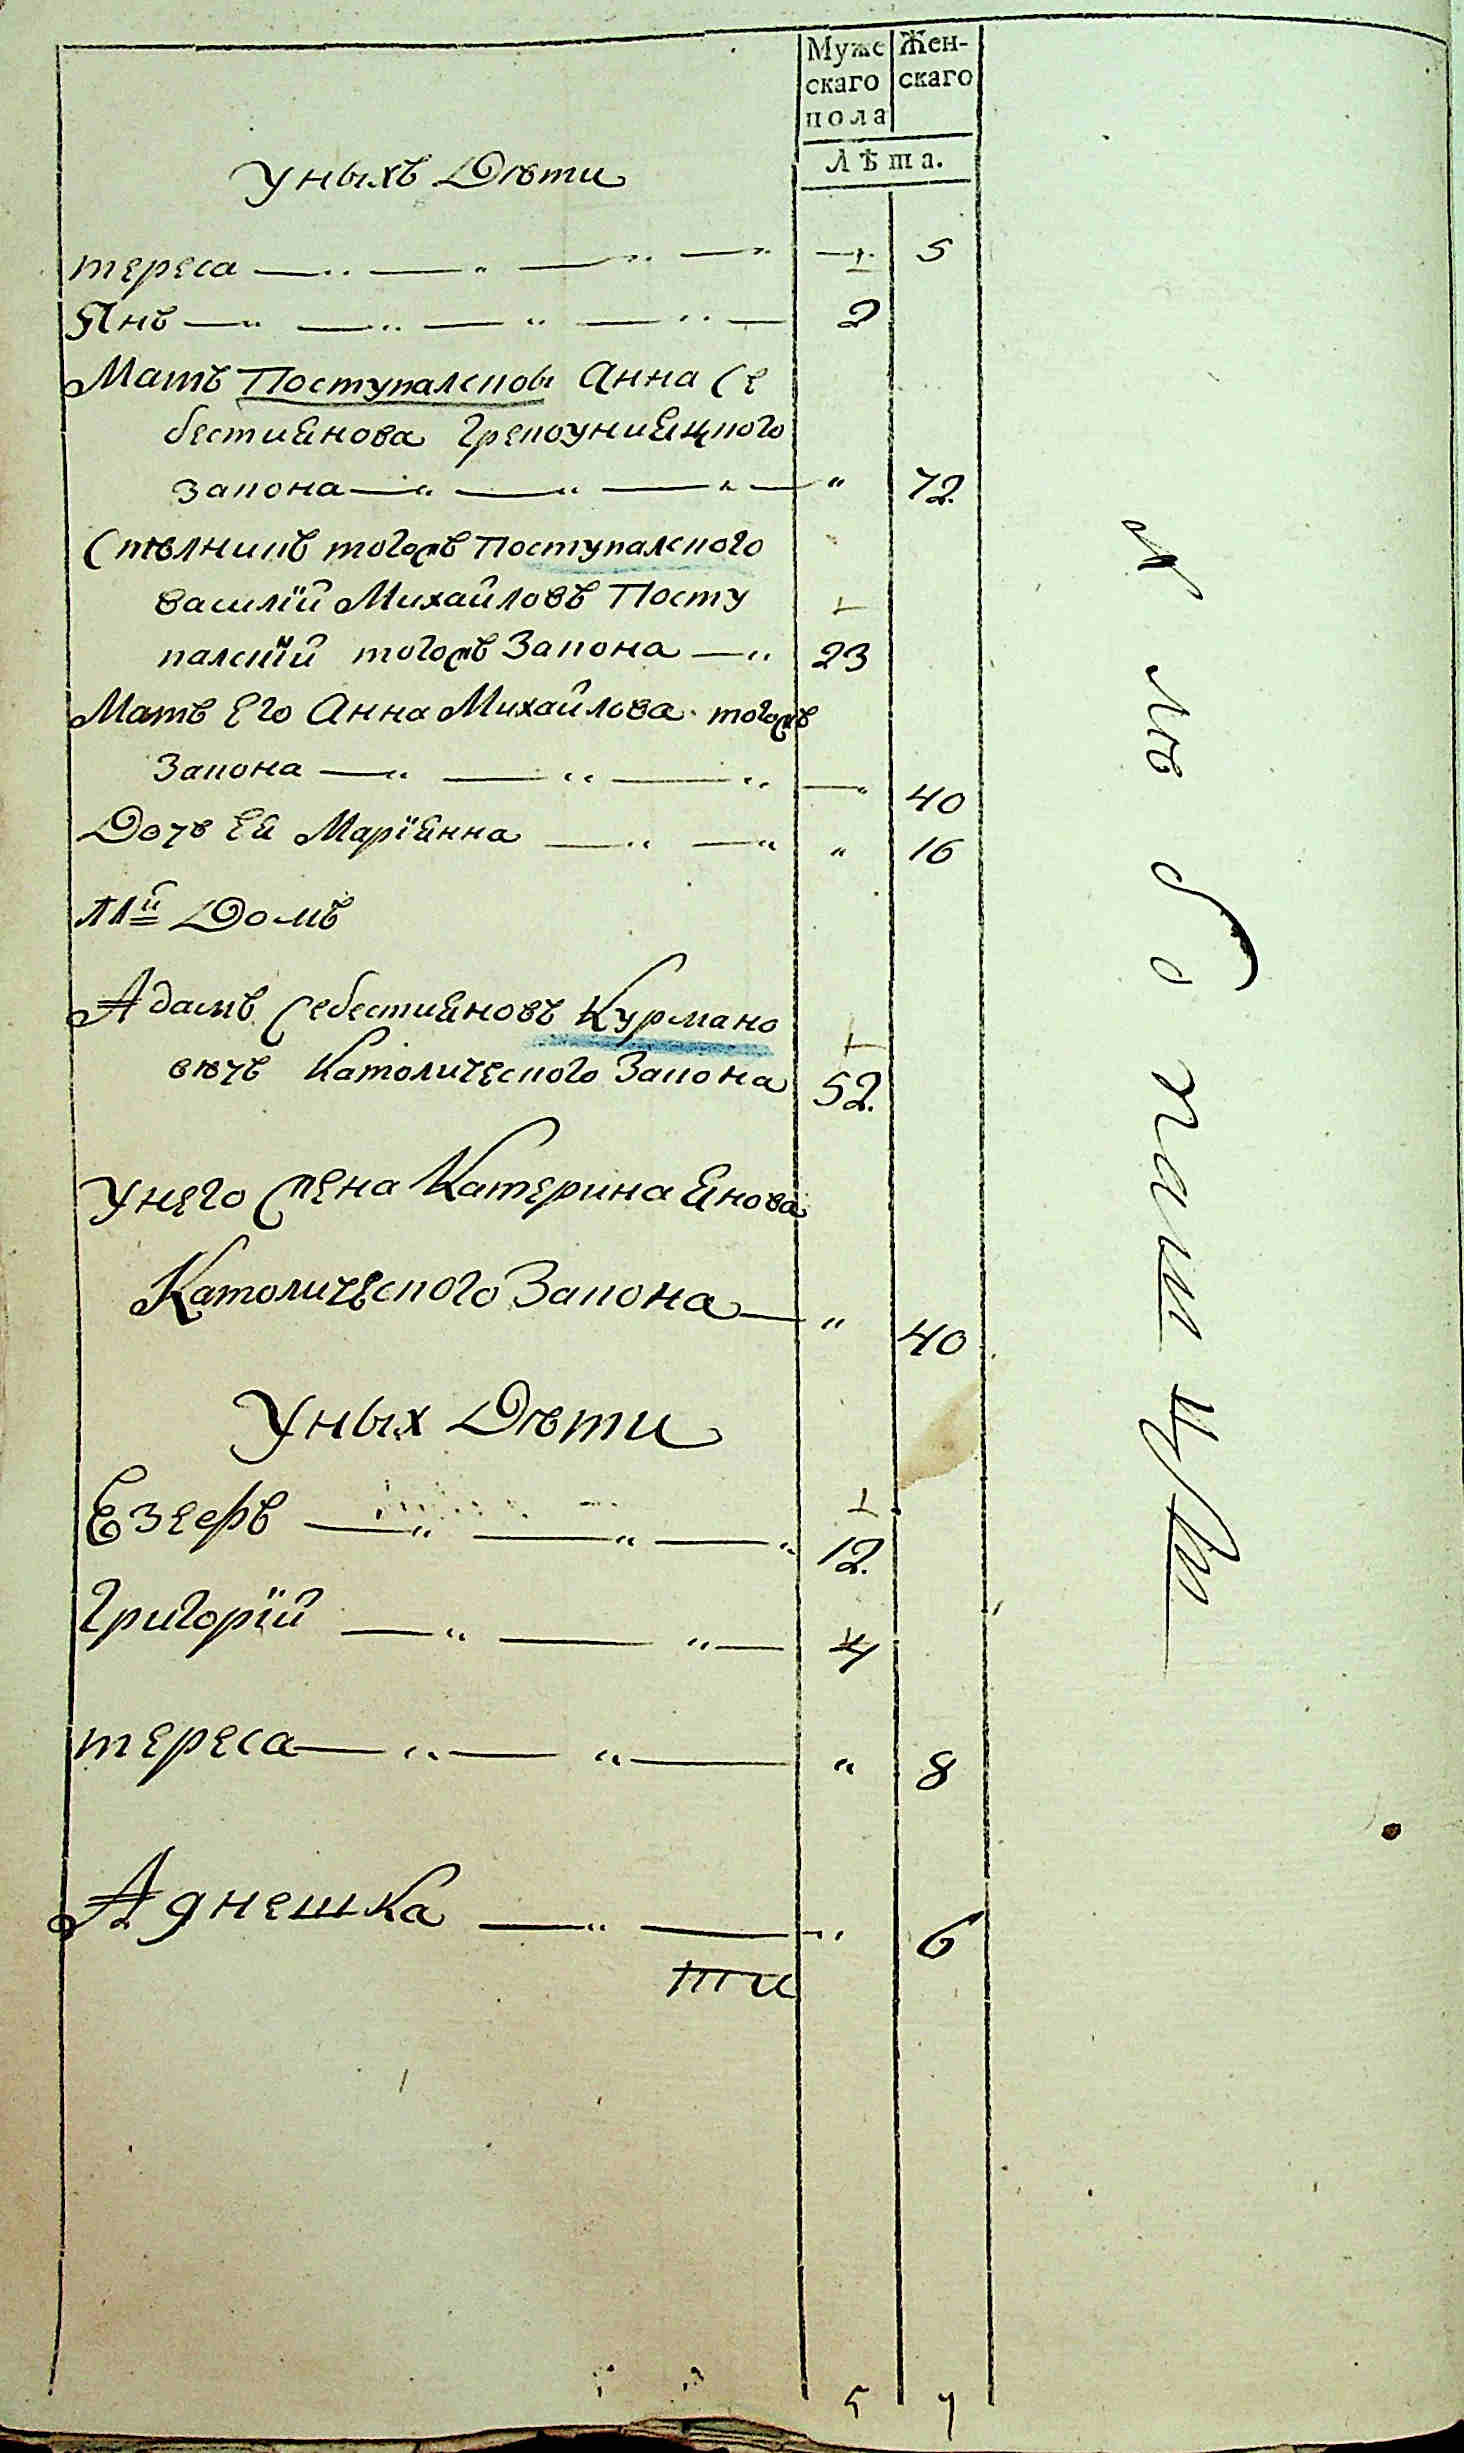 Муже Жен-
скаго скаго
пола
Лѣта.
Уныхъ Дѣти
тереса 5
Янъ 2
Мать Поступалскові Анна Се
бестиянова Грекоунияцкого
Закона 72
тогожъ Поступалского
Василїй Михайловъ Посту
палскїй тогожъ Закона 23
Мать Его Анна Михайлова тогожъ
Закона 40
Дочь Ея Марїянна 16
й Домъ
Адамъ Себестияновъ Курмано
вѣчъ Католического Закона 52
Унего Жена Катерина Янова
Католического Закона 40
Уныхъ Дѣти
Езефъ 12
Григорїй 4
тереса 8
Агнешка 6
ти
5